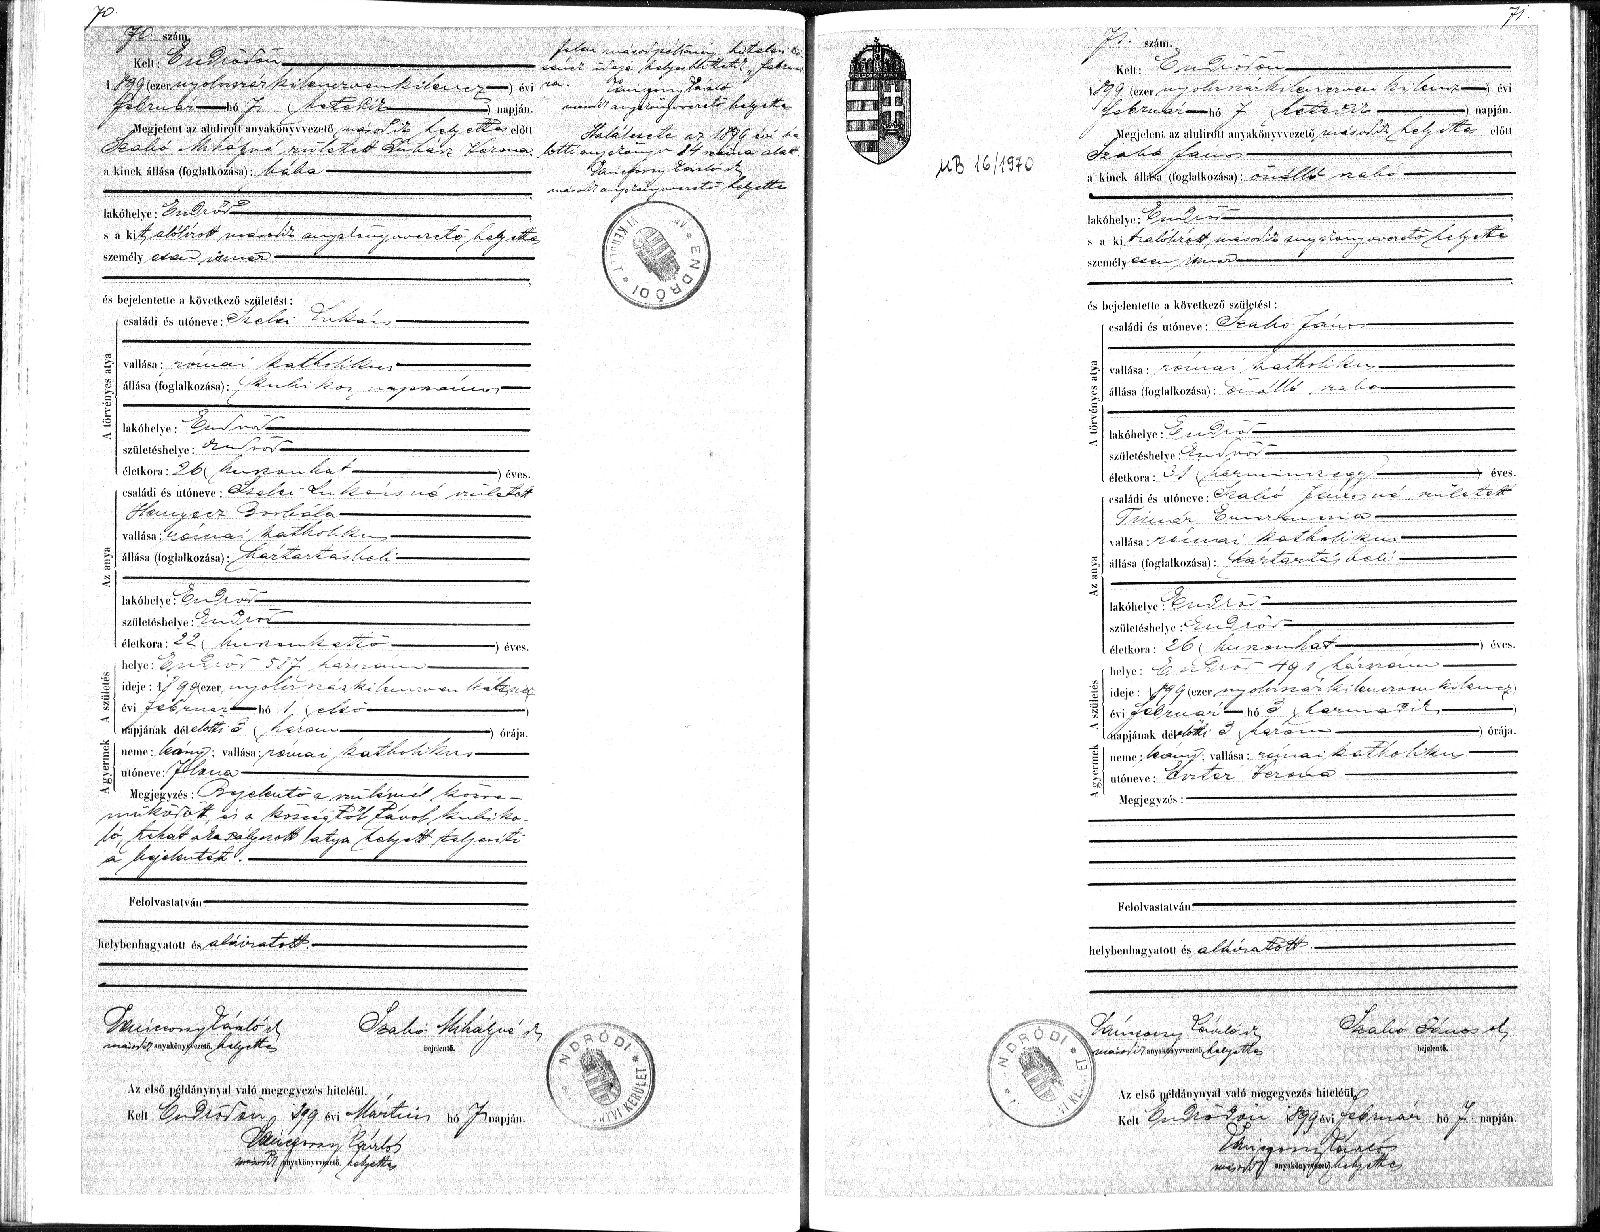 70.
70. szám.
Kelt: Endrődön
1899 (ezernyolcszázkilenczvenkilencz) évi
február hó 7. (hetedik) napján.
Megjelent az alulirott anyakönyvvezető második helyettes előtt
Szabó Mihályné született Juhász Verona
a kinek állása (foglalkozása): bába
lakóhelye: Endrőd
s a kit alólírott második anyakönyvvezető helyettes
személyesen ismer
és bejelentette a következő születést:
A törvényes atya
családi és utóneve: Lukács
vallása: római katholikus
állása (foglalkozása): kubikos napszámos
lakóhelye: Endrőd
születéshelye: Endrőd
életkora: 26 (huszonhat) éves.
Az anya
családi és utóneve: Lukácsné született
Hanyecz Borbála
vallása: római katholikus
állása (foglalkozása): háztartásbeli
lakóhelye: Endrőd
születéshelye: Endrőd
életkora: 22 (huszonkettő) éves.
A születés
helye: Endrőd 587 házszám
ideje: 1899 (ezernyolcszázkilenczvenkilencz)
évi február hó 1 (első)
napjának délelőtti 3 (három) órája.
A gyermek
neme: leány; vallása: római katholikus
utóneve: Ilona
Megjegyzés: Bejelentő a szülésnél közre-
működött, és a községtől távol kubiko-
ló, tehát akadályozott atya helyett teljesíti
a bejelentést.
Felolvastatván
helybenhagyatott és aláíratott.
második anyakönyvvezető helyettes
Szabó Mihályné
bejelentő.
Az első példánynyal való megegyezés hiteléül.
Kelt Endrődön, 1899 évi Március hó 7 napján.
második anyakönyvvezető helyettes
második anyakönyvvezető helyettes
Halálesete az 1896 évi ha-
lotti anyakönyv 84 száma alatt
második anyakönyvvezető helyettes
ENDRŐDI
ENDRŐDI
KERÜLET
71.
71. szám.
Kelt: Endrődön
1899 (ezernyolcszázkilenczvenkilencz) évi
február hó 7 (hetedik) napján.
Megjelent az alulirott anyakönyvvezető második helyettes előtt
Szabó János
a kinek állása (foglalkozása): önálló szabó
lakóhelye: Endrőd
s a kit alólírott, második anyakönyvvezető helyettes
személyesen ismer
és bejelentette a következő születést:
A törvényes atya
családi és utóneve: Szabó János
vallása: római katholikus
állása (foglalkozása): önálló szabó
lakóhelye: Endrőd
születéshelye: Endrőd
életkora: 31 (harminczegy) éves.
Az anya
családi és utóneve: Szabó Jánosné született
Timár
vallása: római katholikus
állása (foglalkozása): háztartásbeli
lakóhelye: Endrőd
születéshelye: Endrőd
életkora: 26 (huszonhat) éves.
A születés
helye: Endrőd 491 házszám
ideje: 1899 (ezernyolcszázkilenczvenkilencz)
évi február hó 3 (harmadik)
napjának délelőtti 3 (három) órája.
A gyermek
neme: leány; vallása: római katholikus
utóneve: Eszter Verona
Megjegyzés:
Felolvastatván
helybenhagyatott és aláíratott
második anyakönyvvezető helyettes
Szabó János
bejelentő.
Az első példánynyal való megegyezés hiteléül.
Kelt Endrődön 1899 évi február hó 7 napján.
második anyakönyvvezető helyettes
MB 16/1970
ENDRŐDI